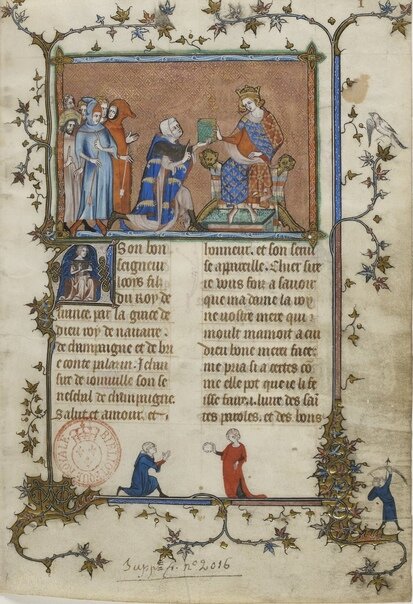 1
A Son bon
seigneur
looys filz
du roy de
france. par la grace de
dieu roy de nauarre.
de champaigne et de bri
e conte palazin. Jehan
sire de ioinuille son se
neschal de champaigne.
Salut et amour. et
honneur. et son seruise
apareille. Chier sire
ie vous foiz a sauoir
que ma dame la roy
ne uostre mere qui
moult mamoit a cui
dieu bone merci face.
me pria si a certes co
me elle pot que ie li fe
isse faire .i. liure des sai
tes paroles. et des bons
Suppl. fr. n° 2016